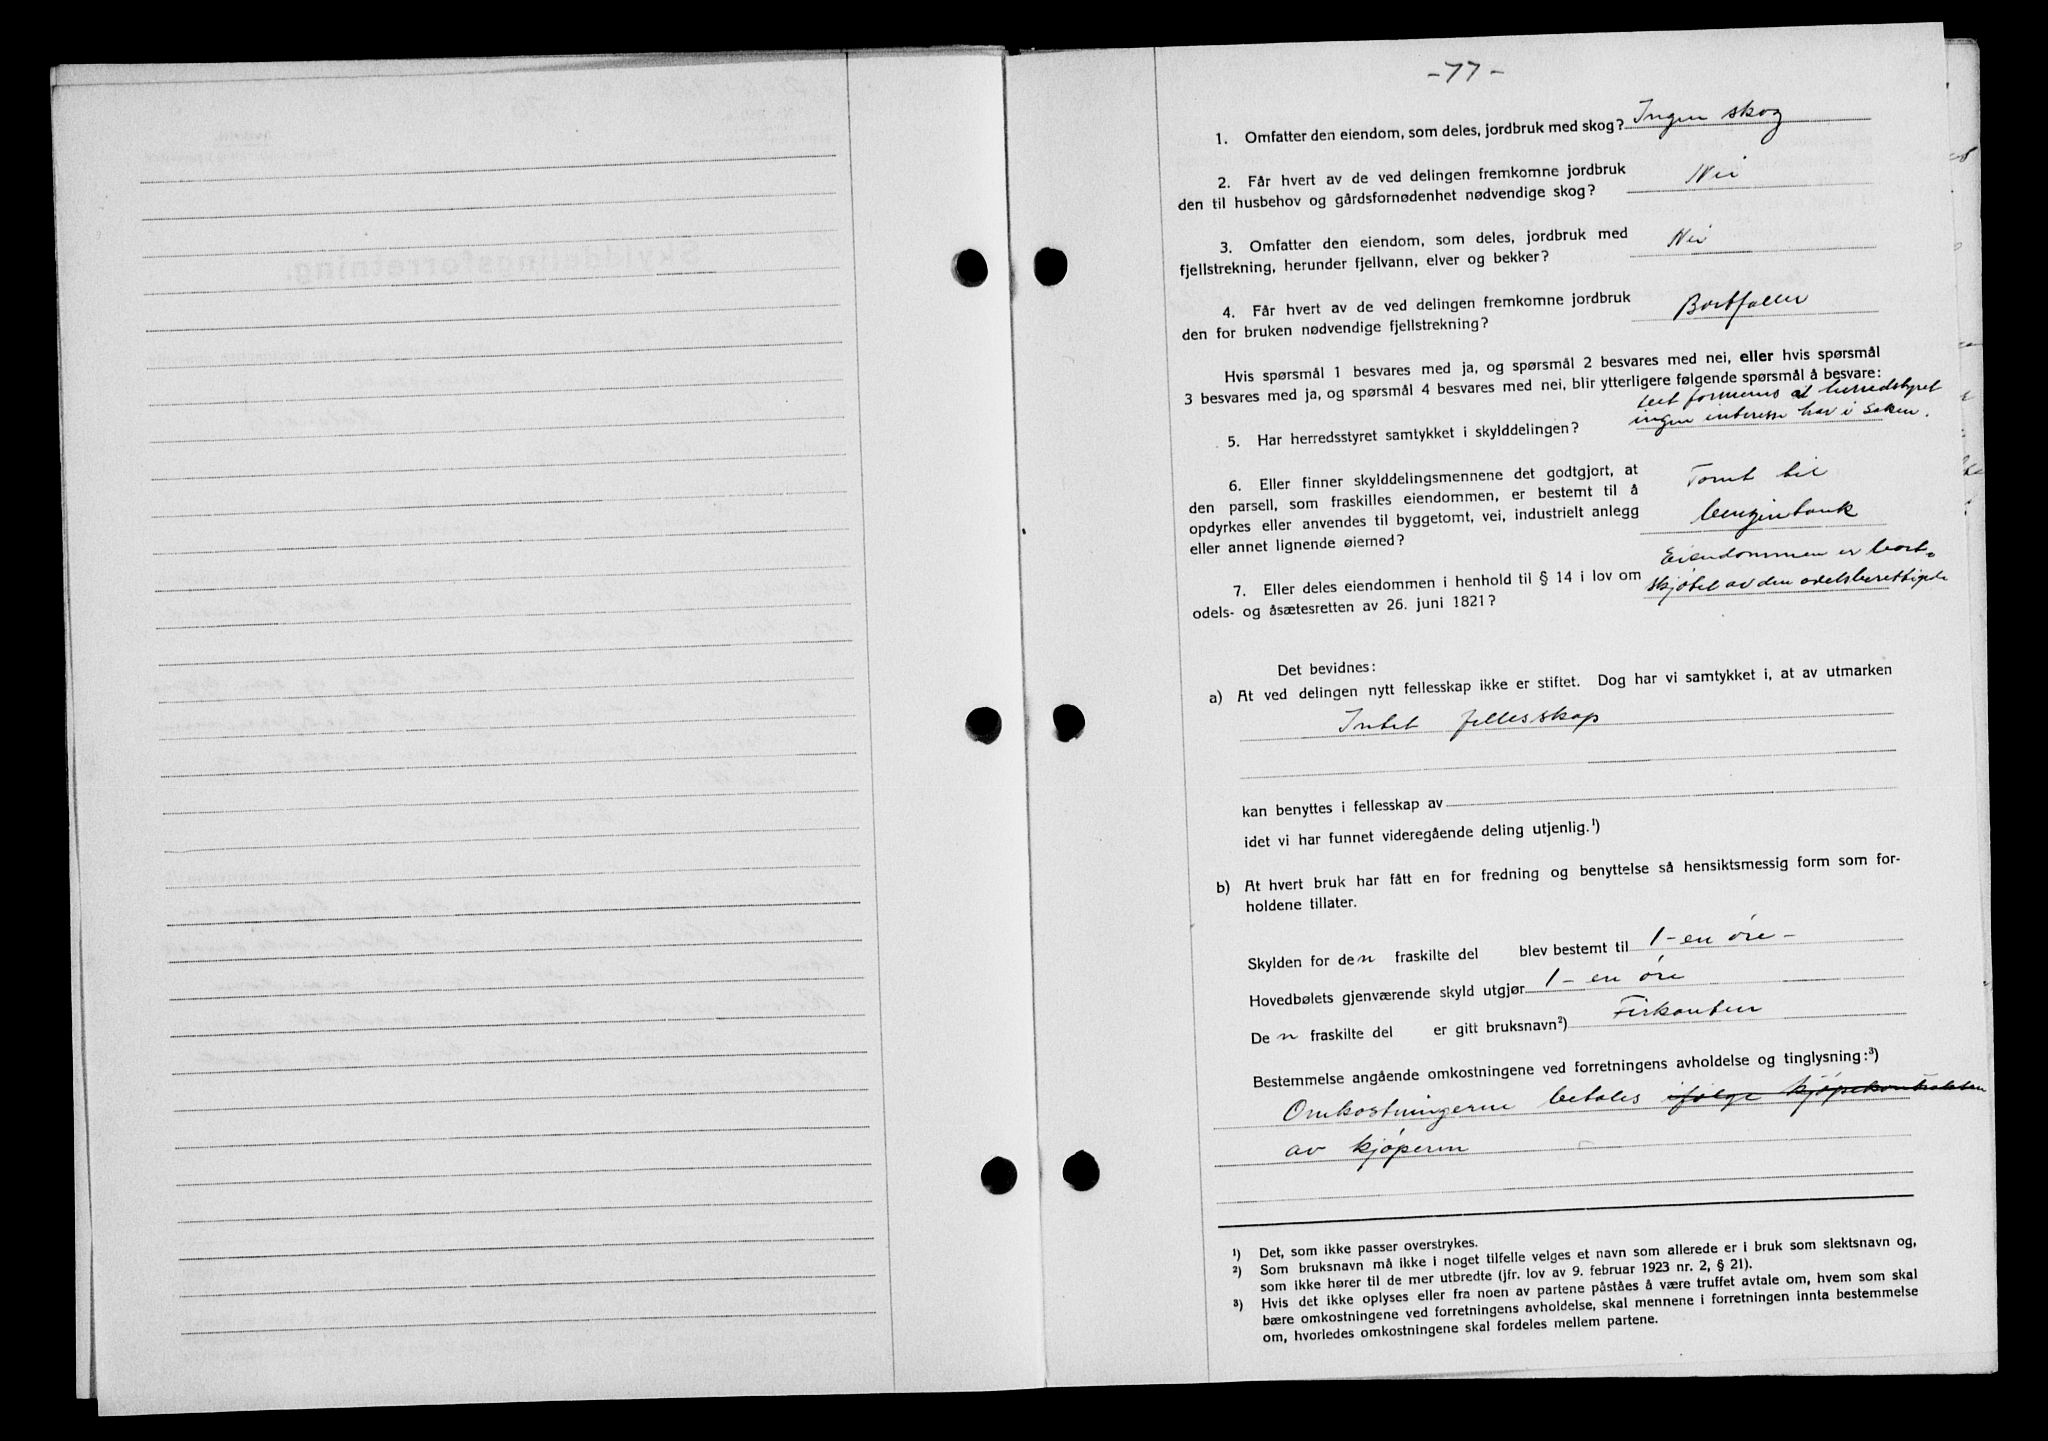 -77-
1. Omfatter den eiendom, som deles, jordbruk med skog? Ingen skog
2. Får hvert av de ved delingen fremkomne jordbruk
den til husbehov og gårdsfornødenhet nødvendige skog? Nei
3. Omfatter den eiendom, som deles, jordbruk med
fjellstrekning, herunder fjellvann, elver og bekker? Nei
4. Får hvert av de ved delingen fremkomne jordbruk
den for bruken nødvendige fjellstrekning? Bortfaller
Hvis spørsmål 1 besvares med ja, og spørsmål 2 besvares med nei, eller hvis spørsmål
3 besvares med ja, og spørsmål 4 besvares med nei, blir ytterligere følgende spørsmål å besvare:
det formenes at herredstyret
5. Har herredsstyret samtykket i skylddelingen? ingen interesse har i saken.
6. Eller finner skylddelingsmennene det godtgjort, at
den parsell, som fraskilles eiendommen, er bestemt til å
opdyrkes eller anvendes til byggetomt, vei, industrielt anlegg
eller annet lignende øiemed?
Tomt til
benzintank
7. Eller deles eiendommen i henhold til § 14 i lov om
odels- og åsætesretten av 26. juni 1821?
Eiendommen er bort-
skjøtet av den odelsberettigede
Det bevidnes:
a) At ved delingen nytt fellesskap ikke er stiftet. Dog har vi samtykket i, at av utmarken
Intet fellesskap
kan benyttes i fellesskap av
idet vi har funnet videregående deling utjenlig.¹)
b) At hvert bruk har fått en for fredning og benyttelse så hensiktsmessig form som for-
holdene tillater.
Skylden for den fraskilte del blev bestemt til 1 - en øre -
Hovedbølets gjenværende skyld utgjør 1 - en øre
De n fraskilte del er gitt bruksnavn²) Firkanten
Bestemmelse angående omkostningene ved forretningens avholdelse og tinglysning:³)
Omkostningerne betales ifølge kjøpekontrakten
av kjøperen
¹) Det, som ikke passer overstrykes.
²) Som bruksnavn må ikke i noget tilfelle velges et navn som allerede er i bruk som slektsnavn og,
som ikke hører til de mer utbredte (jfr. lov av 9. februar 1923 nr. 2, § 21).
³) Hvis det ikke oplyses eller fra noen av partene påståes å være truffet avtale om, hvem som skal
bære omkostningene ved forretningens avholdelse, skal mennene i forretningen innta bestemmelse
om, hvorledes omkostningene skal fordeles mellem partene.